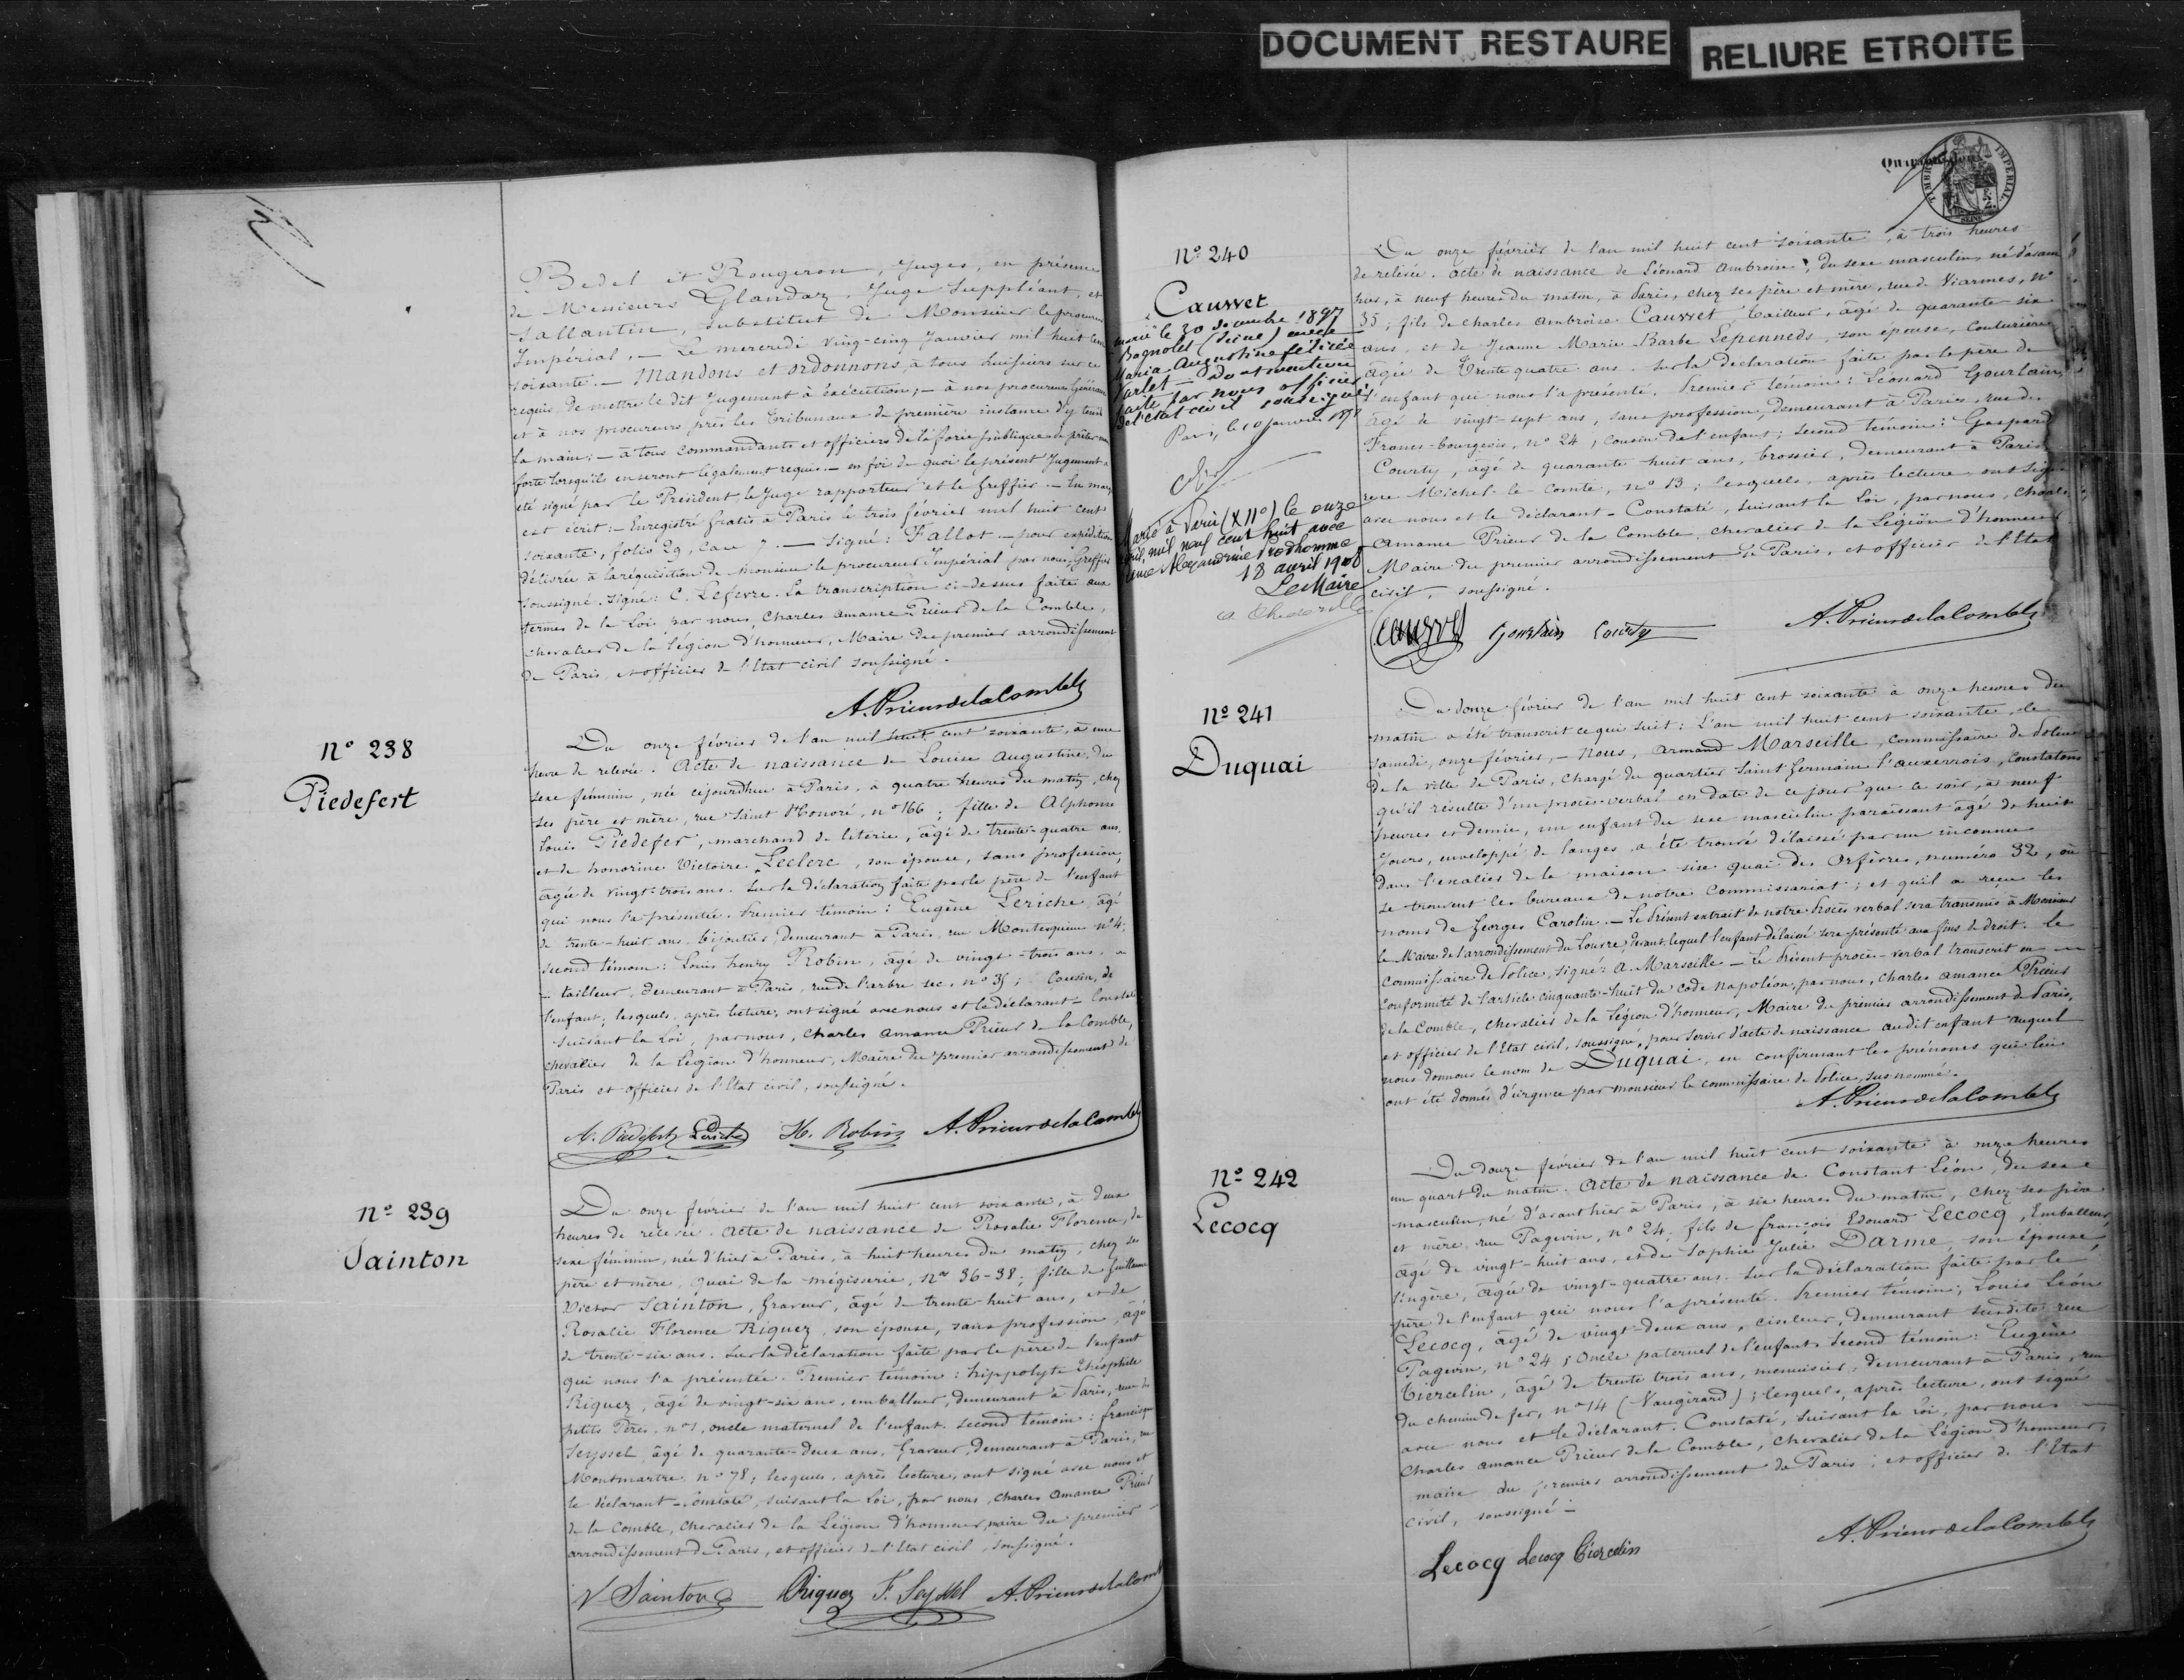 DOCUMENT RESTAURE
RELIURE ETROITE
Bedel et Rougeron, Juges, en présence
de Messieurs Glandaz, Juge Suppléant, et
Sallantin, Substitut de Monsieur le procureur
Impérial, — Le mercredi Ving-cinq Janvier mil huit cent
soixante. — Mandons et ordonnons, à tous huissiers sur ce
requis, de mettre le dit Jugement à éxécution; — à nos procureurs Généraux
et à nos procureurs près les Tribunaux de première instance d'y tenir
la main; — à tous commandants et officiers de la force publique de prêter main
forte lorsqu'ils en seront légalement requis. — en foi de quoi le présent Jugement a
été signé par le Président, le Juge rapporteur et le Greffier. — En marge
est écrit: — Enregistré gratis à Paris le trois février mil huit cent
soixante, folio 29, Case 7. — Signé: Fallot. — pour expédition
délivrée à la réquisition de Monsieur le procureur Impérial par nous, Greffier
soussigné. Signé: C. Lefevre. La transcription ci-dessus faite aux
termes de la Loi par nous, Charles Amance Prieur de la Comble,
chevalier de la Légion d'honneur, Maire du premier arrondissement
de Paris, et officier de l'Etat civil soussigné.
A. Prieur de la Comble
Nº 238
Piedefert
Du onze février de l'an mil huit cent soixante, à une
heure de relevée. Acte de naissance de Louise Augustine, du
sexe féminin, née cejourdhui à Paris, à quatre heures du matin, chez
ses père et mère, rue Saint Honoré, nº 166; fille de Alphonse
Louis Piedefer, marchand de literie, âgé de trente-quatre ans,
et de honorine Victoire Leclerc, son épouse, sans profession,
âgée de vingt-trois ans. Sur la déclaration faite par le père de l'enfant
qui nous l'a présentée. Premier témoin: Eugène Leriche, âgé
de trente-huit ans, bijoutier, demeurant à Paris, rue Montesquieu nº 4;
second témoin: Louis henry Robin, âgé de vingt-trois ans,
— tailleur, demeurant à Paris, rue de l'arbre sec, nº 35; Cousin, de
l'enfant; lesquels, après lecture, ont signé avec nous et le déclarant — Constaté
suivant la Loi, par nous, Charles Amance Prieur de la Comble,
chevalier de la Légion d'honneur, Maire du premier arrondissement de
Paris et officier de l'Etat civil, soussigné.
A. Piedefert Leriche H. Robin A. Prieur de la Comble
Nº 239
Sainton
Du onze février de l'an mil huit cent soixante, à deux
heures de relevée. Acte de naissance de Rosalie Florence, du
sexe féminin, née d'hier à Paris, à huit heures du matin, chez ses
père et mère, quai de la mégisserie, Nos 36-38; fille de Guillaume
Victor Sainton, Graveur, âgé de trente-huit ans, et de
Rosalie Florence Riquez, son épouse, sans profession, âgé
de trente-six ans. Sur la déclaration faite par le père de l'enfant
qui nous l'a présentée. Premier témoin: hippolyte théophile
Riquez, âgé de vingt-six ans, emballeur, demeurant à Paris, rue des
petits Pères, nº 1, oncle maternel de l'enfant. second témoin: francisque
Seyssel, âgé de quarante-deux ans, Graveur, demeurant à Paris, rue
Montmartre nº 78; lesquels, après lecture, ont signé avec nous et
le déclarant — Constaté, suivant la Loi, par nous, Charles Amance Prieur
de la Comble, chevalier de la Légion d'honneur, maire du premier
arrondissement de Paris, et officier de l'Etat civil, soussigné.
V Sainton Riquez F. Seyssel A. Prieur de la Comble
Nº 240
Cauvet
marié le 30 décembre 1897
Bagnolet (Seine) avec
Maria Augustine félicie
Varlet — Dont mention
faite par nous officier
de l'état civil soussigné
Paris, le 10 janvier
Marié à Paris (XIIº) le onze
avril mil neuf cent huit avec
Alexandrine Prodhomme
18 avril 1908
Le Maire
TIMBRE IMPERIAL
SEINE
Du onze février de l'an mil huit cent soixante, à trois heures
de relevée. Acte de naissance de Léonard Ambroise, du sexe masculin, né d'avant
hier, à neuf heures du matin, à Paris, chez ses père et mère, rue de Viarmes, Nº
35; fils de Charles Ambroise Cauvet, tailleur, âgé de quarante six
ans, et de Jeanne Marie Barbe Lepenneds, son épouse, couturière
âgée de trente quatre ans. Sur la déclaration faite par le père de
l'enfant qui nous l'a présenté. Premier témoin: Léonard Gourlain
âgé de vingt-sept ans, sans profession, demeurant à Paris, rue des
Francs-bourgeois, nº 24, cousin de l'enfant; second témoin: Gaspard
Courty, âgé de quarante huit ans, brossier, demeurant à Paris
rue Michel-le Comte, nº 13; lesquels, après lecture ont signé
avec nous et le déclarant — Constaté, suivant la Loi, par nous, Charles
Amance Prieur de la Comble, chevalier de la Légion d'honneur
Maire du premier arrondissement de Paris, et officier de l'Etat
civil, soussigné.
Cauvet Gourlain Courty A. Prieur de la Comble
Nº 241
Duquai
Du douze février de l'an mil huit cent soixante à onze heures du
matin a été transcrit ce qui suit: L'an mil huit cent soixante, le
samedi, onze février, — Nous, Armand Marseille, commissaire de Police
de la ville de Paris, chargé du quartier Saint Germain l'auxerrois, constatons
qu'il résulte d'un procès-verbal en date de ce jour que ce soir, à neuf
heures et demie, un enfant du sexe masculin paraissant âgé de huit
jours, enveloppé de langes, a été trouvé délaissé par un inconnu
dans l'escalier de la maison sise quai des Orfèvres, numéro 32, où
se trouvent les bureaux de notre Commissariat; et qu'il a reçu les
noms de Georges Carolin. — Le Présent extrait de notre Procès verbal sera transmis à Monsieur
le Maire de l'arrondissement du Louvre, devant lequel l'enfant délaissé sera présenté aux fins de droit. Le
Commissaire de Police, signé: A. Marseille — Le Présent procès-verbal transcrit en
conformité de l'article cinquante-huit du Code Napoléon, par nous, Charles Amance Prieur
de la Comble, chevalier de la Légion d'honneur, Maire du premier arrondissement de Paris,
et officier de l'Etat civil, soussigné, pour servir d'acte de naissance audit enfant auquel
nous donnons le nom de Duquai, en confirmant les prénoms qui lui
ont été donnés d'urgence par monsieur le commissaire de Police, sus-nommé.
A. Prieur de la Comble
Nº 242
Lecocq
Du douze février de l'an mil huit cent soixante à onze heures
un quart du matin. Acte de naissance de Constant Léon, du sexe
masculin, né d'avant hier à Paris, à six heures du matin, chez ses père
et mère, rue Pagevin, nº 24; fils de françois Edouard Lecocq, Emballeur,
âgé de vingt-huit ans, et de Sophie Julie Darme, son épouse
lingère, âgée de vingt-quatre ans. Sur la déclaration faite par le
père de l'enfant qui nous l'a présenté. Premier témoin; Louis Léon
Lecocq, âgé de vingt-deux ans, ciseleur, demeurant susdite rue
Pagevin, nº 24; Oncle paternel de l'enfant. Second témoin: Eugène
Tiercelin, âgé de trente trois ans, menuisier, demeurant à Paris, rue
du chemin de fer, nº 14 (Vaugirard); lesquels, après lecture, ont signé
avec nous et le déclarant. Constaté, suivant la Loi, par nous —
Charles Amance Prieur de la Comble, chevalier de la Légion d'honneur,
maire du premier arrondissement de Paris, et officier de l'Etat
civil, soussigné —
Lecocq Lecocq Tiercelin A. Prieur de la Comble